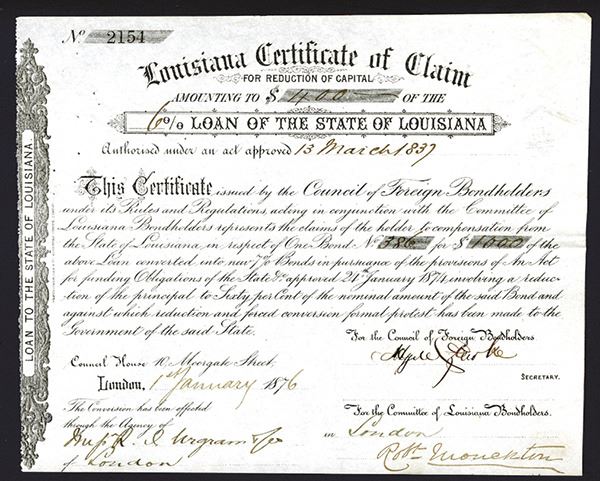 No 2154
Louisiana Certificate of Claim
FOR REDUCTION OF CAPITAL
AMOUNTING TO $ 400 OF THE
6% LOAN OF THE STATE OF LOUISIANA
Authorised under an act approved 13 March 1837
This Certificate issued by the Council of Foreign Bondholders
under its Rules and Regulations, acting in conjunction with the Committee of
Louisiana Bondholders represents the claims of the holder to compensation from
the State of Louisiana, in respect of One Bond No 386 for $ 1000 of the
above Loan converted into new 7% Bonds in pursuance of the provisions of An Act
for funding Obligations of the State &c approved 24th January 1874 involving a reduc-
tion of the principal to Sixty per Cent of the nominal amount of the said Bond and
against which reduction and forced conversion formal protest has been made to the
Government of the said State.
For the Council of Foreign Bondholders
Hyde Clarke
SECRETARY.
Council House 10, Moorgate Street,
London, 1st January 1876
The Conversion has been effected
through the Agency of
of London
For the Committee of Louisiana Bondholders.
in London
Robt Monckton
LOAN TO THE STATE OF LOUISIANA